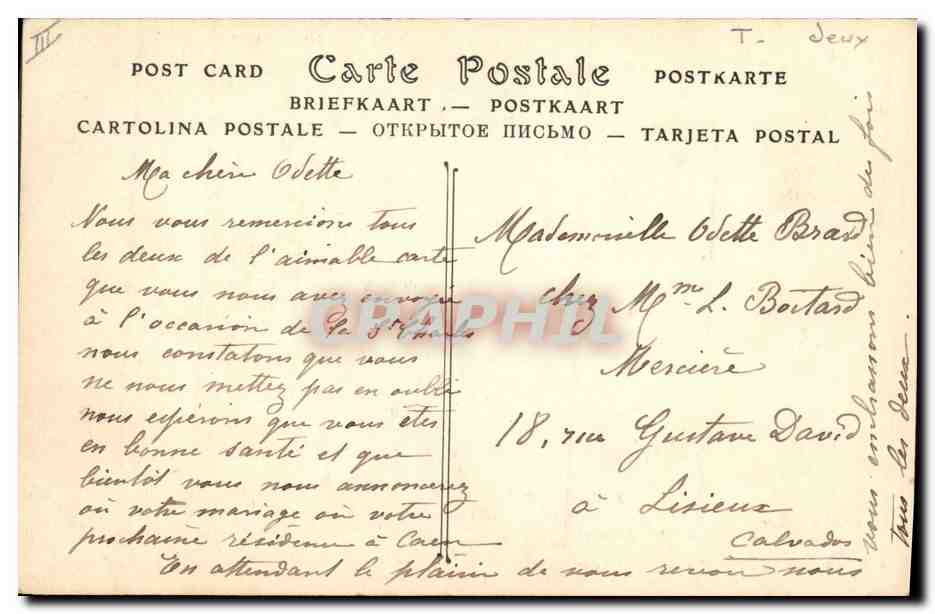 III
T- deux
POST CARD Carte Postale POSTKARTE
BRIEFKAART — POSTKAART
CARTOLINA POSTALE — ОТКРЫТОЕ ПИСЬМО — TARJETA POSTAL
Ma chère Odette
Nous vous remercions tous
les deux de l'aimable carte
que vous nous avez envoyée
à l'occasion de la St Charles
nous constatons que vous
ne nous mettez pas en oubli
nous espérons que vous êtes
en bonne santé et que
bientôt vous nous annoncerez
ou votre mariage ou votre
prochaine résidence à Caen
En attendant le plaisir de vous revoir nous
vous embrassons bien des fois
tous les deux.
Mademoiselle Odette Brard
chez Mme L. Boitard
Mercière
18, rue Gustave David
à Lisieux
Calvados
CPAPHIL